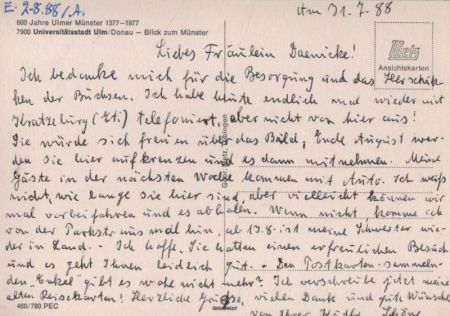 E. 2.8.88/A.
Ulm 31.7.88
600 Jahre Ulmer Münster 1377-1977
7900 Universitätsstadt Ulm/Donau – Blick zum Münster
Metz
Ansichtskarten
Liebes Fräulein Daenicke!
Ich bedanke mich für die Besorgung und das Herschik-
ken der Büchsen. Ich habe heute endlich mal wieder mit
(Eti) telefoniert, aber nicht von hier aus!
Sie würde sich freuen über das Bild, Ende August wer-
den Sie hier aufkreuzen und es dann mitnehmen. Meine
Gäste in der nächsten Woche kommen mit Auto. Ich weiß
nicht, wie lange Sie hier sind, aber vielleicht können wir
mal vorbeifahren und es abholen. Wenn nicht, komme ich
von der Parkstr. aus mal hin, ab 13.8. ist meine Schwester wie-
der im Land. - Ich hoffe, Sie hatten einen erfreulichen Besuch
und es geht Ihnen leidlich gut. - Den Postkarten-sammeln-
den "Enkel" gibt es wohl nicht mehr? Ich verschreibe jetzt meine
alten Reisekarten! Herzliche Grüße, vielen Dank und gute Wünsche
von Ihrer
460/780 PEC